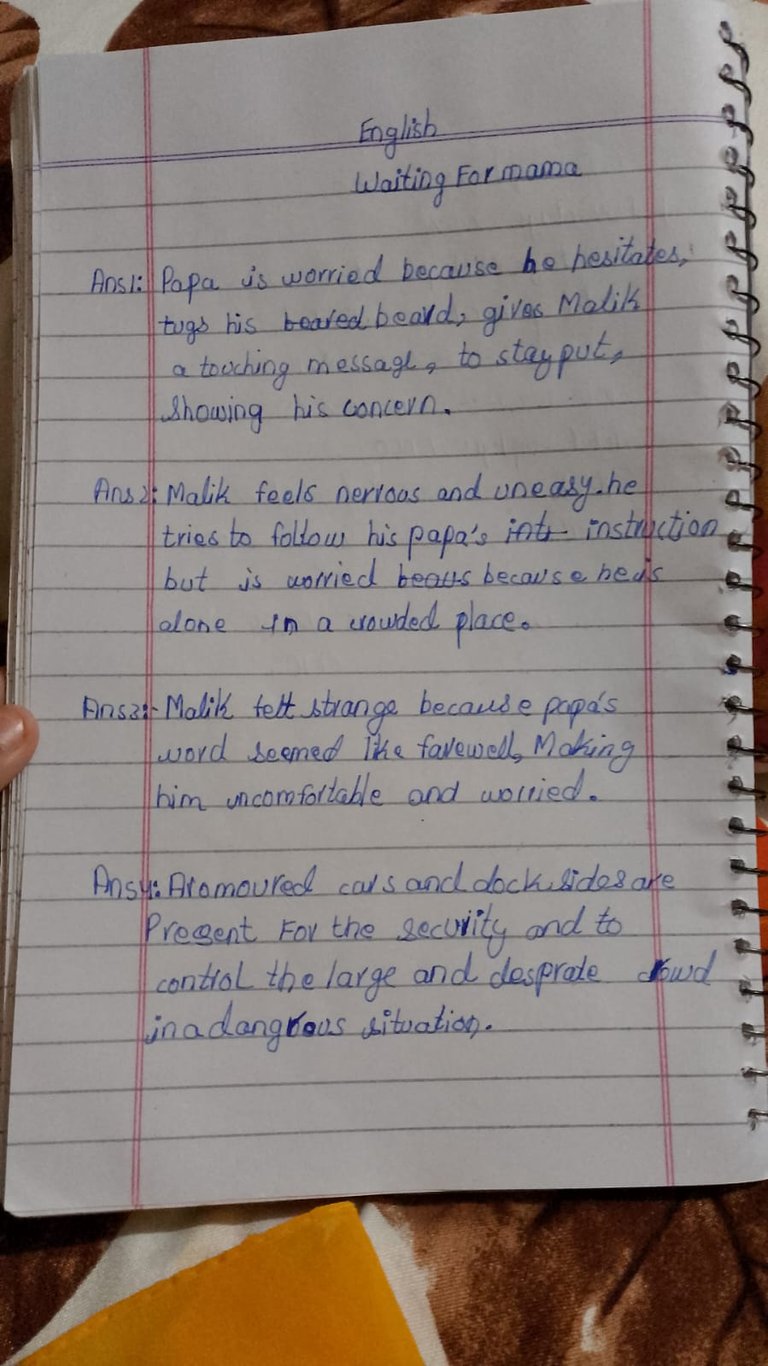 English
Waiting For mama
Ans1: Papa is worried because he hesitates,
tugs his beared beard, gives Malik
a touching message, to stay put,
showing his concern.
Ans2: Malik feels nervous and uneasy. he
tries to follow his papa's intr instruction
but is worried beaus because he is
alone in a crowded place.
Ans3:- Malik felt strange because papa's
word seemed like farewell, Making
him uncomfortable and worried.
Ans4: Aromoured cars and dock sides are
Present For the security and to
control the large and desprate crowd
in a dangrous situation.